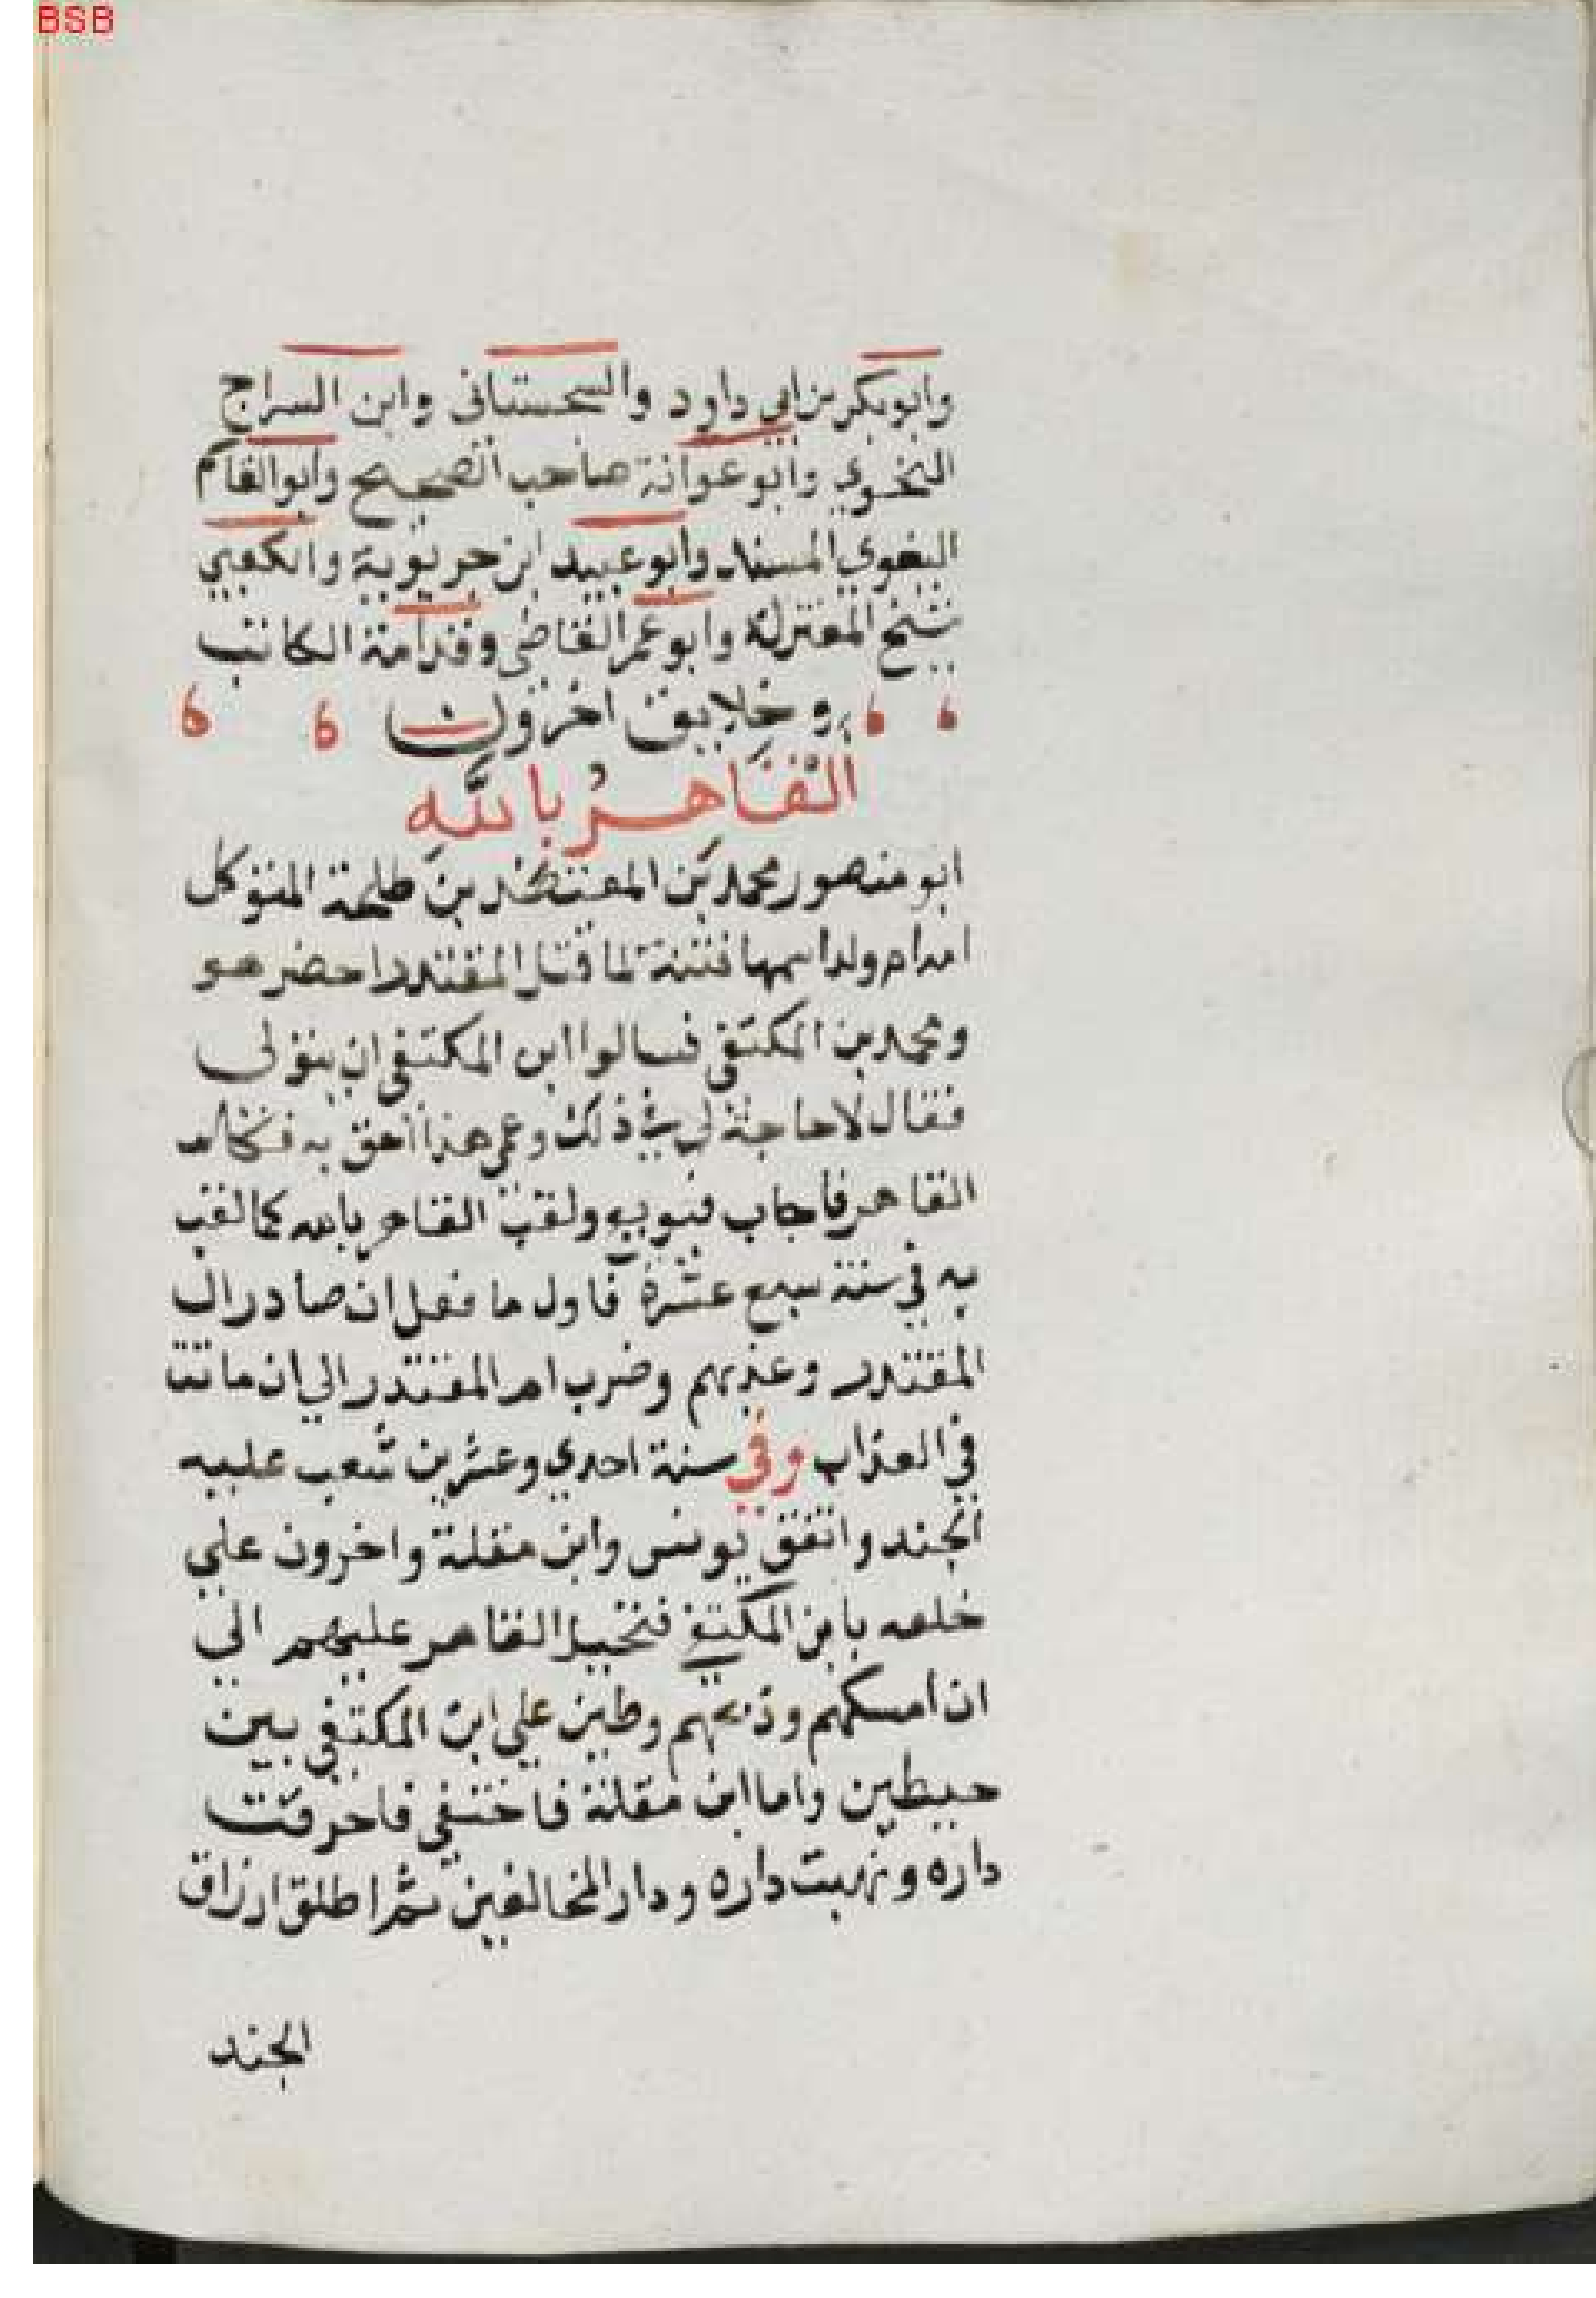 BSB
وابوبكر بن ابي داود والسحستانى وابن السراج
النحوي وابو عوانة صاحب الصحيح وابو القاسم
البغوي المسند وابو عبيد ابن حربوية والكعبي
شيخ المعتزلة وابو عمر القاضى وقدامة الكاتب
وخلايق اخرون
القاهر بالله
ابو منصور محمد بن المعتضد بن طلحة المتوكل
امه ام ولد اسمها فتنة لما قتل المقتدر احضر هو
ومحمد بن المكتفي فسالوا ابن المكتفي ان يتولى
فقال لا حاجة لي في ذلك وعمى هذا احق به فكلم
القاهر فاجاب فبويع ولقب القاهر بالله كما لقب
به في سنة سبع عشرة فاول ما فعل ان صادر ال
المقتدر وعذبهم وضرب ام المقتدر الي ان ماتت
في العذاب وفي سنة احدي وعشرين شعب عليه
الجند واتفق يونس وابن مقلة واخرون علي
خلعه بابن المكتفي فتحيل القاهر عليهم الي
ان امسكهم وذبحهم وطين علي ابن المكتفي بين
حيطين واما ابن مقلة فاختفي فاحرقت
داره ونهبت داره ودار المخالفين ثم اطلق ارزاق
الجند